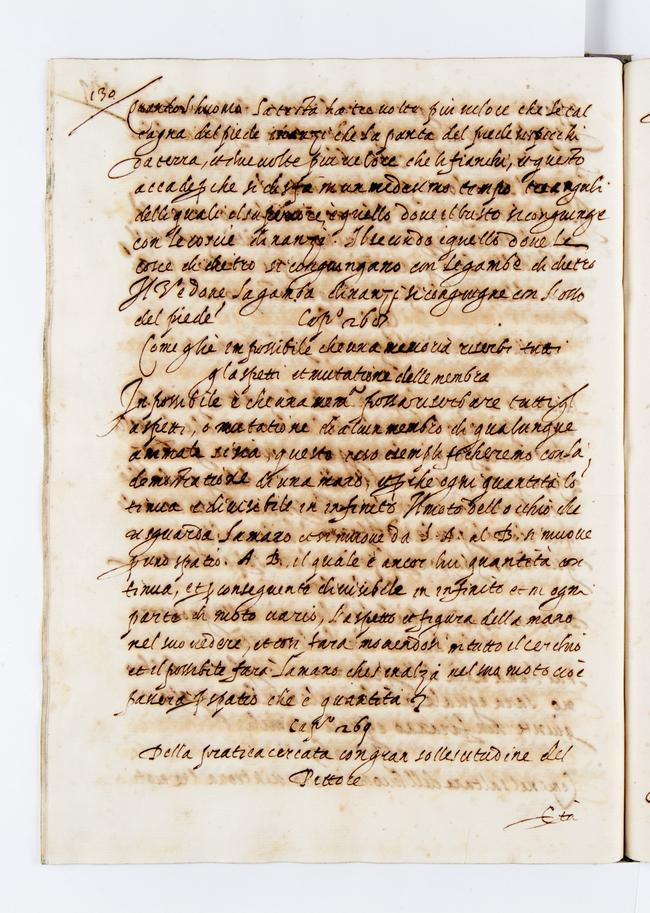 130
Quando l'huomo la testa ha tre volte piu veloce che le cal
cagna del piede inanzi che la panta del piede si spicchi
da terra, et due volte piu veloce che li fianchi, et questo
accade che si disfa in un medesimo tempo tre anguli
delli quali el superiore, è quello dove il busto si congiunge
con le coscie dinanzi. Il secondo è quello dove le
coscie di dietro si congiungano con le gambe di dietro
Il 3° è dove la gamba dinanzi si congiugne con l'osso
del piede Cap.º 268
Come gliè impossibile che una memoria riserbi tutti
gl'aspetti et mutatione delle membra
Impossibile è che una mem.ª possa riserbare tutti gl
aspetti, o mutatione di alcun membro di qualunque
animale si sia, questo caso esemplificheremo con la
demostratione di una mano, et p che ogni quantità co
tinua è divisibile in infinito Il moto dell occhio che
risguarda la mano et si muove da l. A. al B. si muove
p uno spatio. A B, il quale è ancor lui quantità con
tinua, et p conseguente divisibile in infinito et in ogni
parte di moto varia, l'aspetto et figura della mano
nel suo vedere, et cosi fara movendosi in tutto il cerchio
et il possibile farà la mano che s'inalza nel suo moto cioè
passera p spatio che è quantità
Cap.º 269
Della pratica cercata con gran sollecitudine del
Pittore
Età